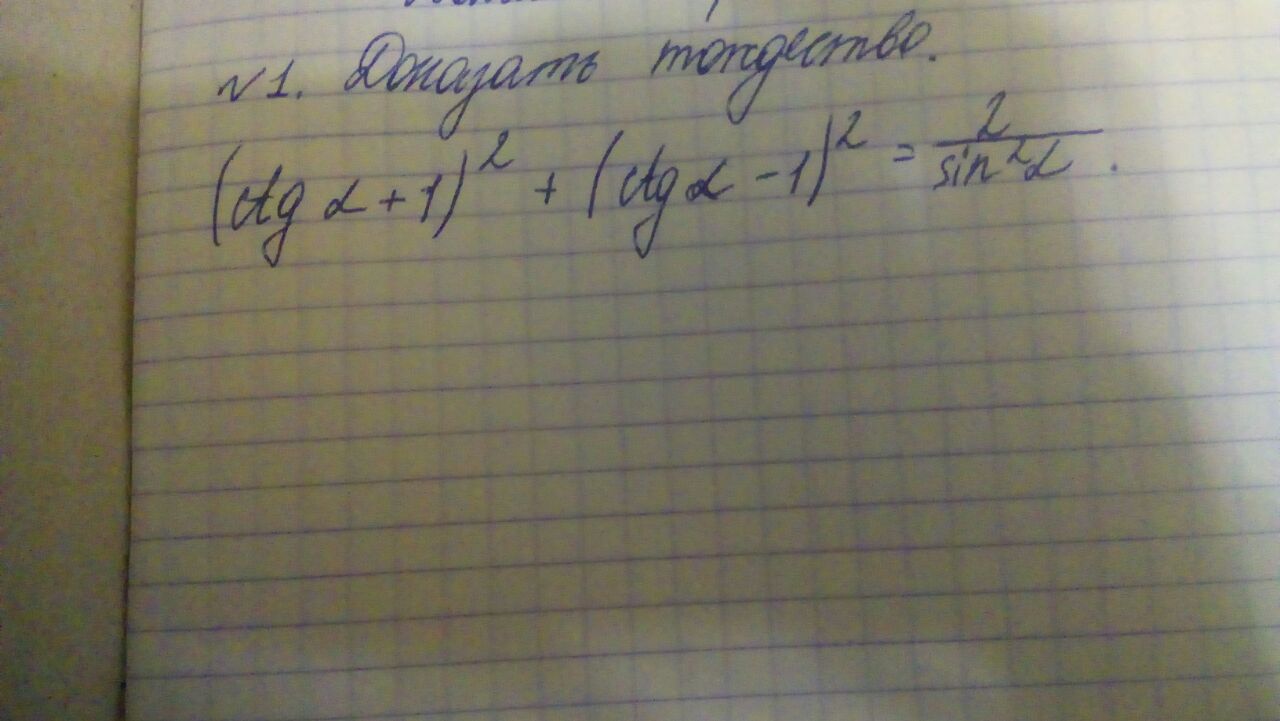 №1. Доказать тождество.
(ctg α + 1)² + (ctg α - 1)² = 2/sin²α.